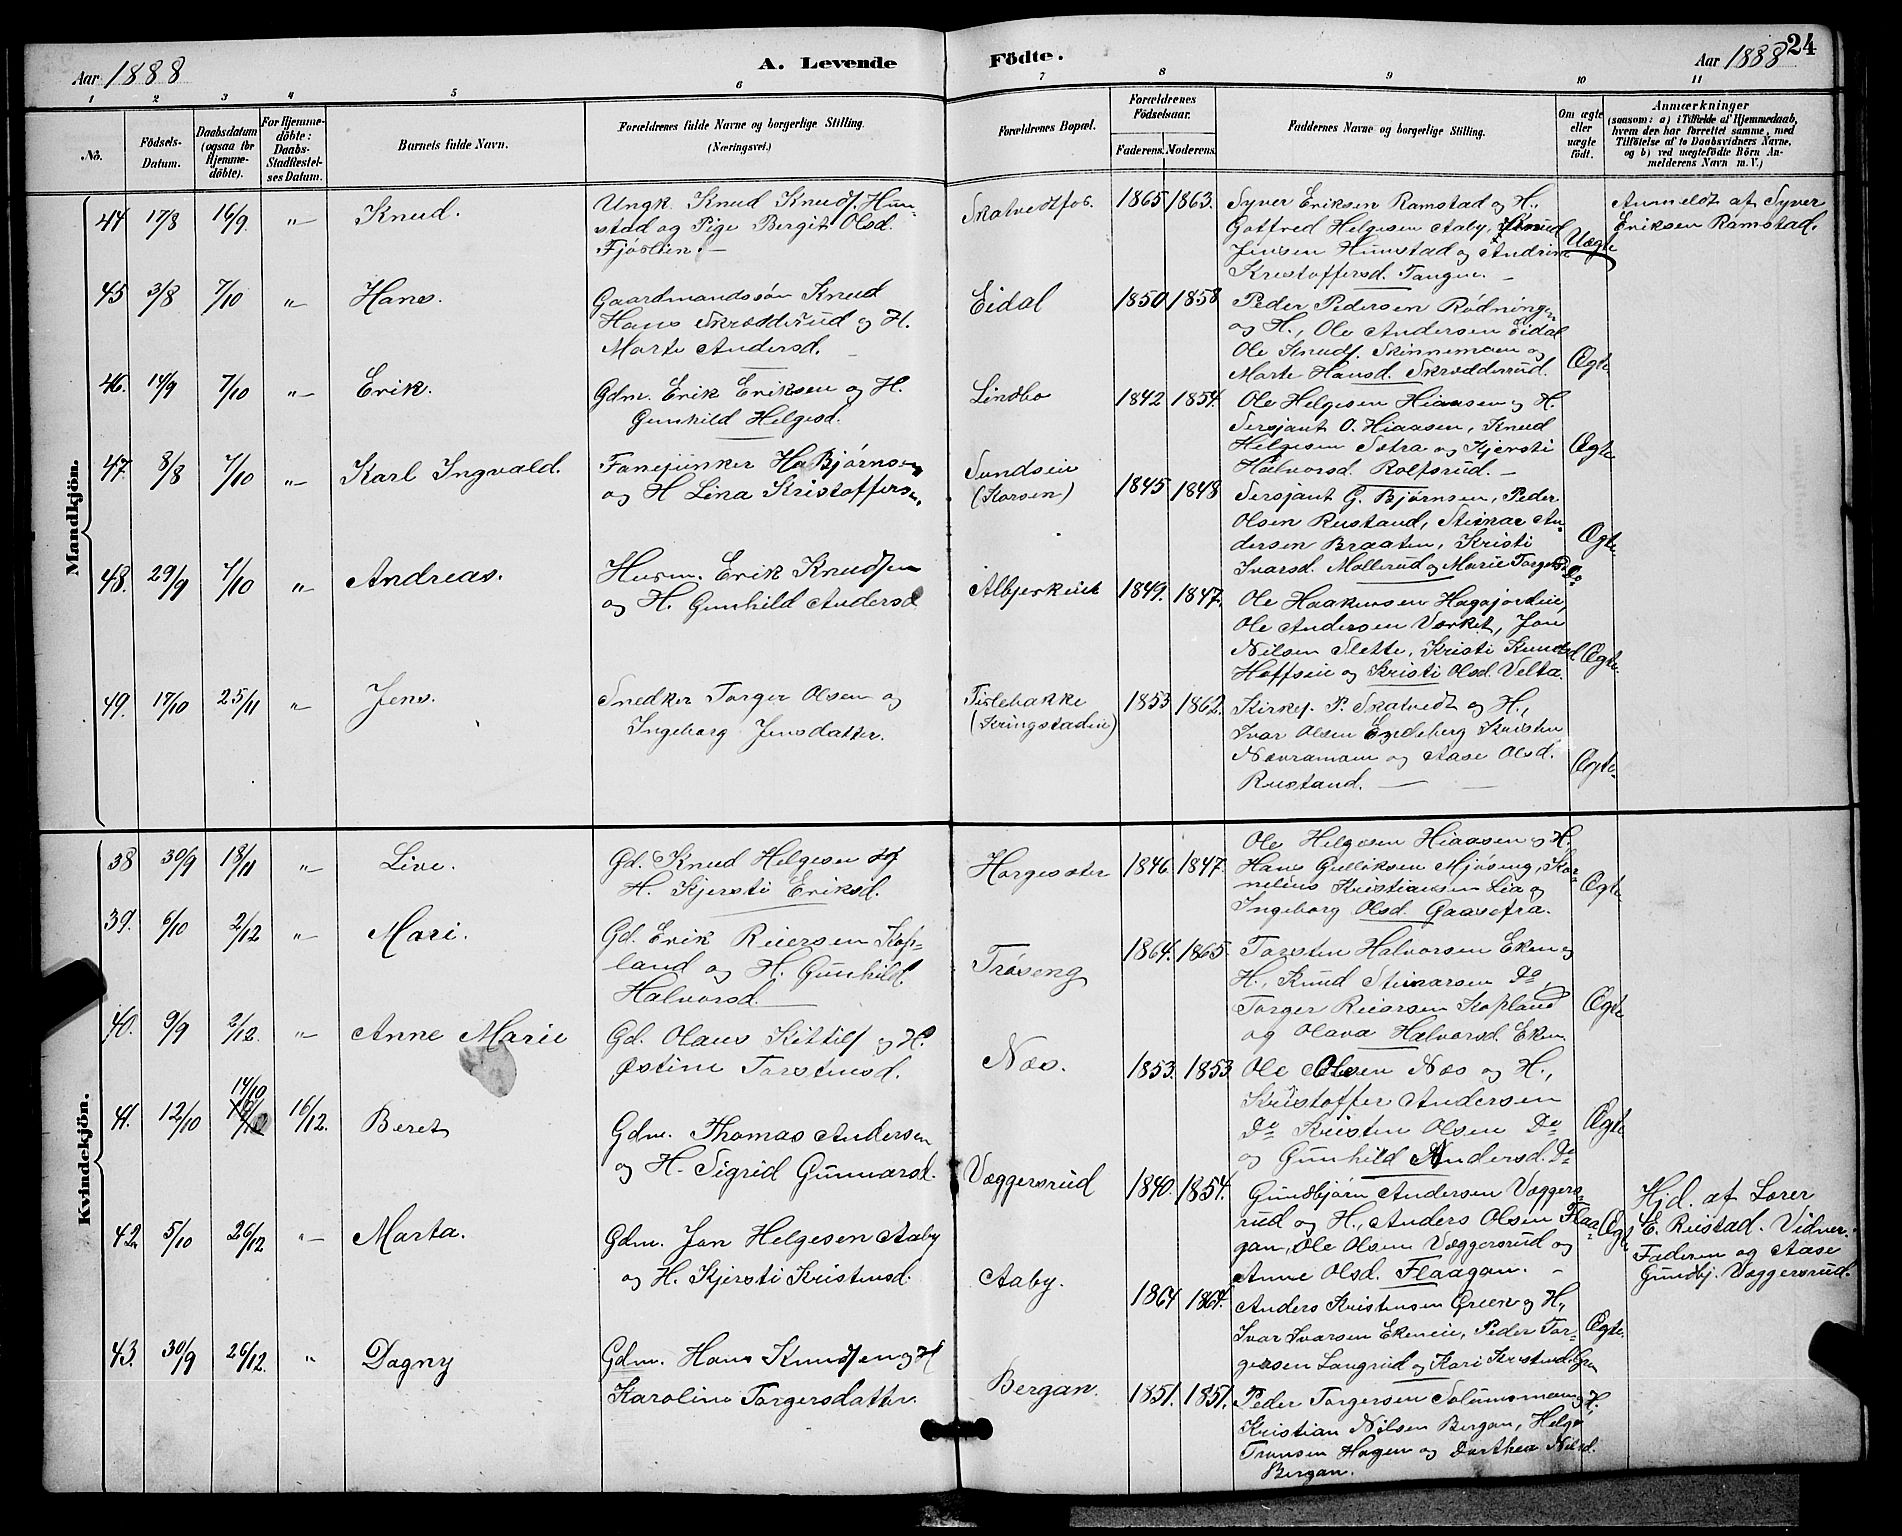 Aar 1888
A. Levende
Födte.
Aar 1888
24
1 2 3 4 5 6 7 8 9 10 11
No.
Födsels-Datum.
Daabsdatum (ogsaa for Hjemme-döbte).
For Hjemme-döbte: Daabs-Stadfæstel-ses Datum.
Barnets fulde Navn.
Forældrenes fulde Navne og borgerlige Stilling.
(Næringsvei.)
Forældrenes Bopæl.
Forældrenes Födselsaar.
Faderens. Moderens.
Faddernes Navne og borgerlige Stilling.
Om ægte eller uægte födt.
Anmærkninger
(saasom: a) i Tilfælde af Hjemmedaab,
hvem der har forrettet samme, med
Tilföielse af to Daabsvidners Navne,
og b) ved uægtefödte Börn An-
melderens Navn m. V.)
Mandkjön.
44 17/8 16/9 " Knud.
Ungk. Knud Knuds. Hun-
stad og Pige Bergit Olsd.
Fjöslien. —
Skatvedtfos. 1865 1863.
Syver Eriksen Ramstad og H.,
Gotfred Helgesen Aaby, Knud
Jensen Hunstad og Andrine
Kristoffersd. Tangen. —
Uægte
Anmeldt af Syver
Eriksen Ramstad.
45 3/8 7/10 " Hans.
Gaardmandssön Knud
Hans Skrædderud og H.
Marte Andersd. —
Eidal 1850 1858
Peder Pedersen Rödninge
og H., Ole Andersen Eidal
Ole Knuds. Skinnemoen og
Marte Hansd. Skrædderud.
Ægte
46. 14/9 7/10 " Erik.
Gdm. Erik Eriksen og H.
Gunhild Helgesd.
Lindbo 1842 1854.
Ole Helgesen Hiaasen og H.
Sersjant O. Hiaasen, Knud
Helgesen Sætra og Kjersti
Halvorsd. Rolfsrud. —
Ægte
47. 8/8 7/10 " Karl Ingvald.
Fanejunker H. Bjørnsen
og H Lina Kristoffersen
Sundseie
(Korsen) 1845 1848
Sersjant G. Bjørnsen, Peder
Olsen Rustand, Steinar An-
dersen Braaten, Kristi
Ivarsd. Mollerud og Marie Torgersd. Do
Ægte
48. 29/9 7/10 " Andreas.
Husm. Erik Knudsen
og H. Gunhild Andersd
Albjerkeie 1849. 1847.
Ole Haakensen Hagajordeie,
Ole Andersen Værket, Jon
Nilsen Slette, Kristi Knudsd
Hoffseie og Kristi Olsd. Velta.
Ægte
49. 17/10 25/11 " Jens.
Snedker Torger Olsen og
Ingeborg Jensdatter.
Tislebakke
(Kringstadeie) 1853 1862.
Kirkes. P. Skatvedt og H.,
Ivar Olsen Engeberg Kristen
Nævramoen og Aase Olsd.
Rustand. — —
Ægte
Kvindekjön.
38 30/9 18/11 " Live.
Gd. Knud Helgesen og
H. Kjersti Eriksd.
Horgesæter 1846. 1847.
Ole Helgesen Hiaasen og H,
Hans Gulliksen Mjösund, Kor-
nelius Kristiansen Lia og
Ingeborg Olsd. Gaasefra.
Ægte
39. 6/10 2/12 " Mari.
Gd. Erik Reiersen Kop-
land og H. Gunhild
Halvorsd.
Tröseng 1864. 1865.
Torsten Halvorsen Eken og
H., Knud Steinarsen Do,
Torger Reiersen Kopland
og Olava Halvorsd. Eken
Ægte
40. 9/9 2/12. " Anne Marie
Gd. Olaus Kittils og H.
Østine Torstensd.
Næs. 1853. 1853
Ole Olsen Næs og H.,
Kristoffer Andersen
Do Kristen Olsen Do
og Gunhild Andersd. Do
Ægte
41. 12/10 14/10 16/12. Beret
Gdm. Thomas Andersen
og H. Sigrid Gunnarsd.
Væggersrud 1840. 1854.
Gundbjörn Andersen Væggers-
rud og H., Anders Olsen Flaa-
gan, Ole Olsen Væggersrud og
Anne Olsd. Flaagan. —
Ægte
Hjd. af Lærer
E. Rustad. Vidner:
Faderen og Aase
Gundbj. Væggersrud.
42. 5/10 26/12 " Marta.
Gdm. Jon Helgesen Aaby
og H. Kjersti Kristensd.
Aaby. 1864 1864.
Anders Kristensen Green og H,
Ivar Ivarsen Ekeneie, Peder Tor-
gersen Langrud og Kari Kristensd. Gren
Ægte.
43. 30/9 26/12. " Dagny
Gdm. Hans Knudsen og H
Karoline Torgersdatter.
Bergan. 1851. 1851.
Peder Torgersen Solumsmoen og H,
Kristian Nilsen Bergan, Helge
Tronsen Hagen og Dorthea Nilsd.
Bergan.